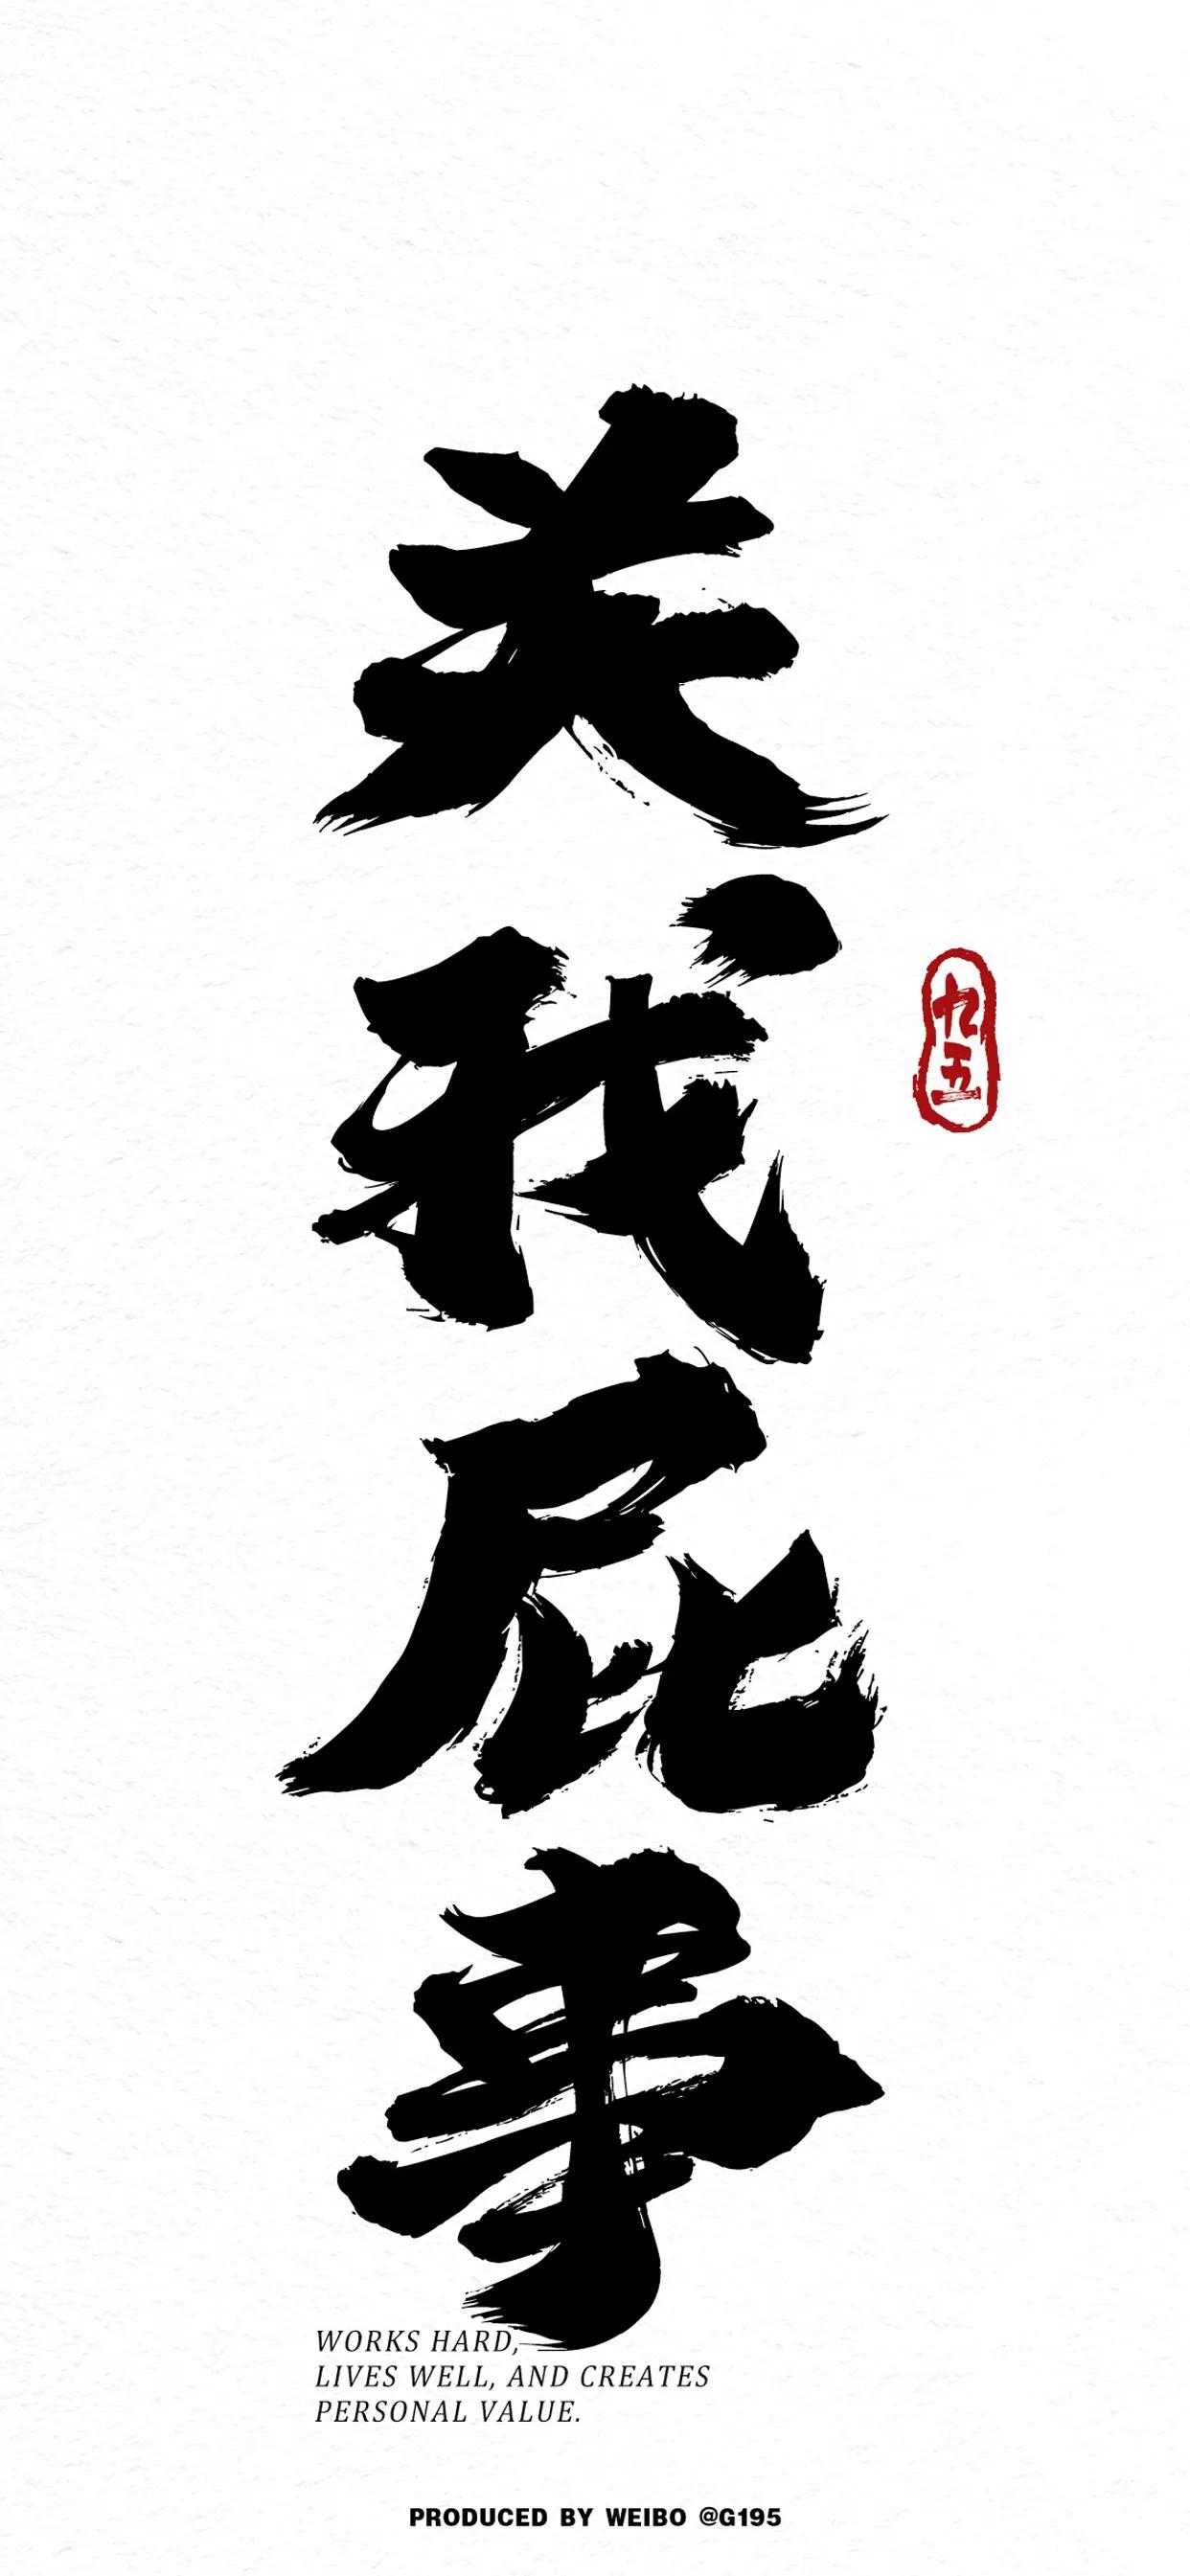 关我屁事
九五
WORKS HARD,
LIVES WELL, AND CREATES
PERSONAL VALUE.
PRODUCED BY WEIBO @G195